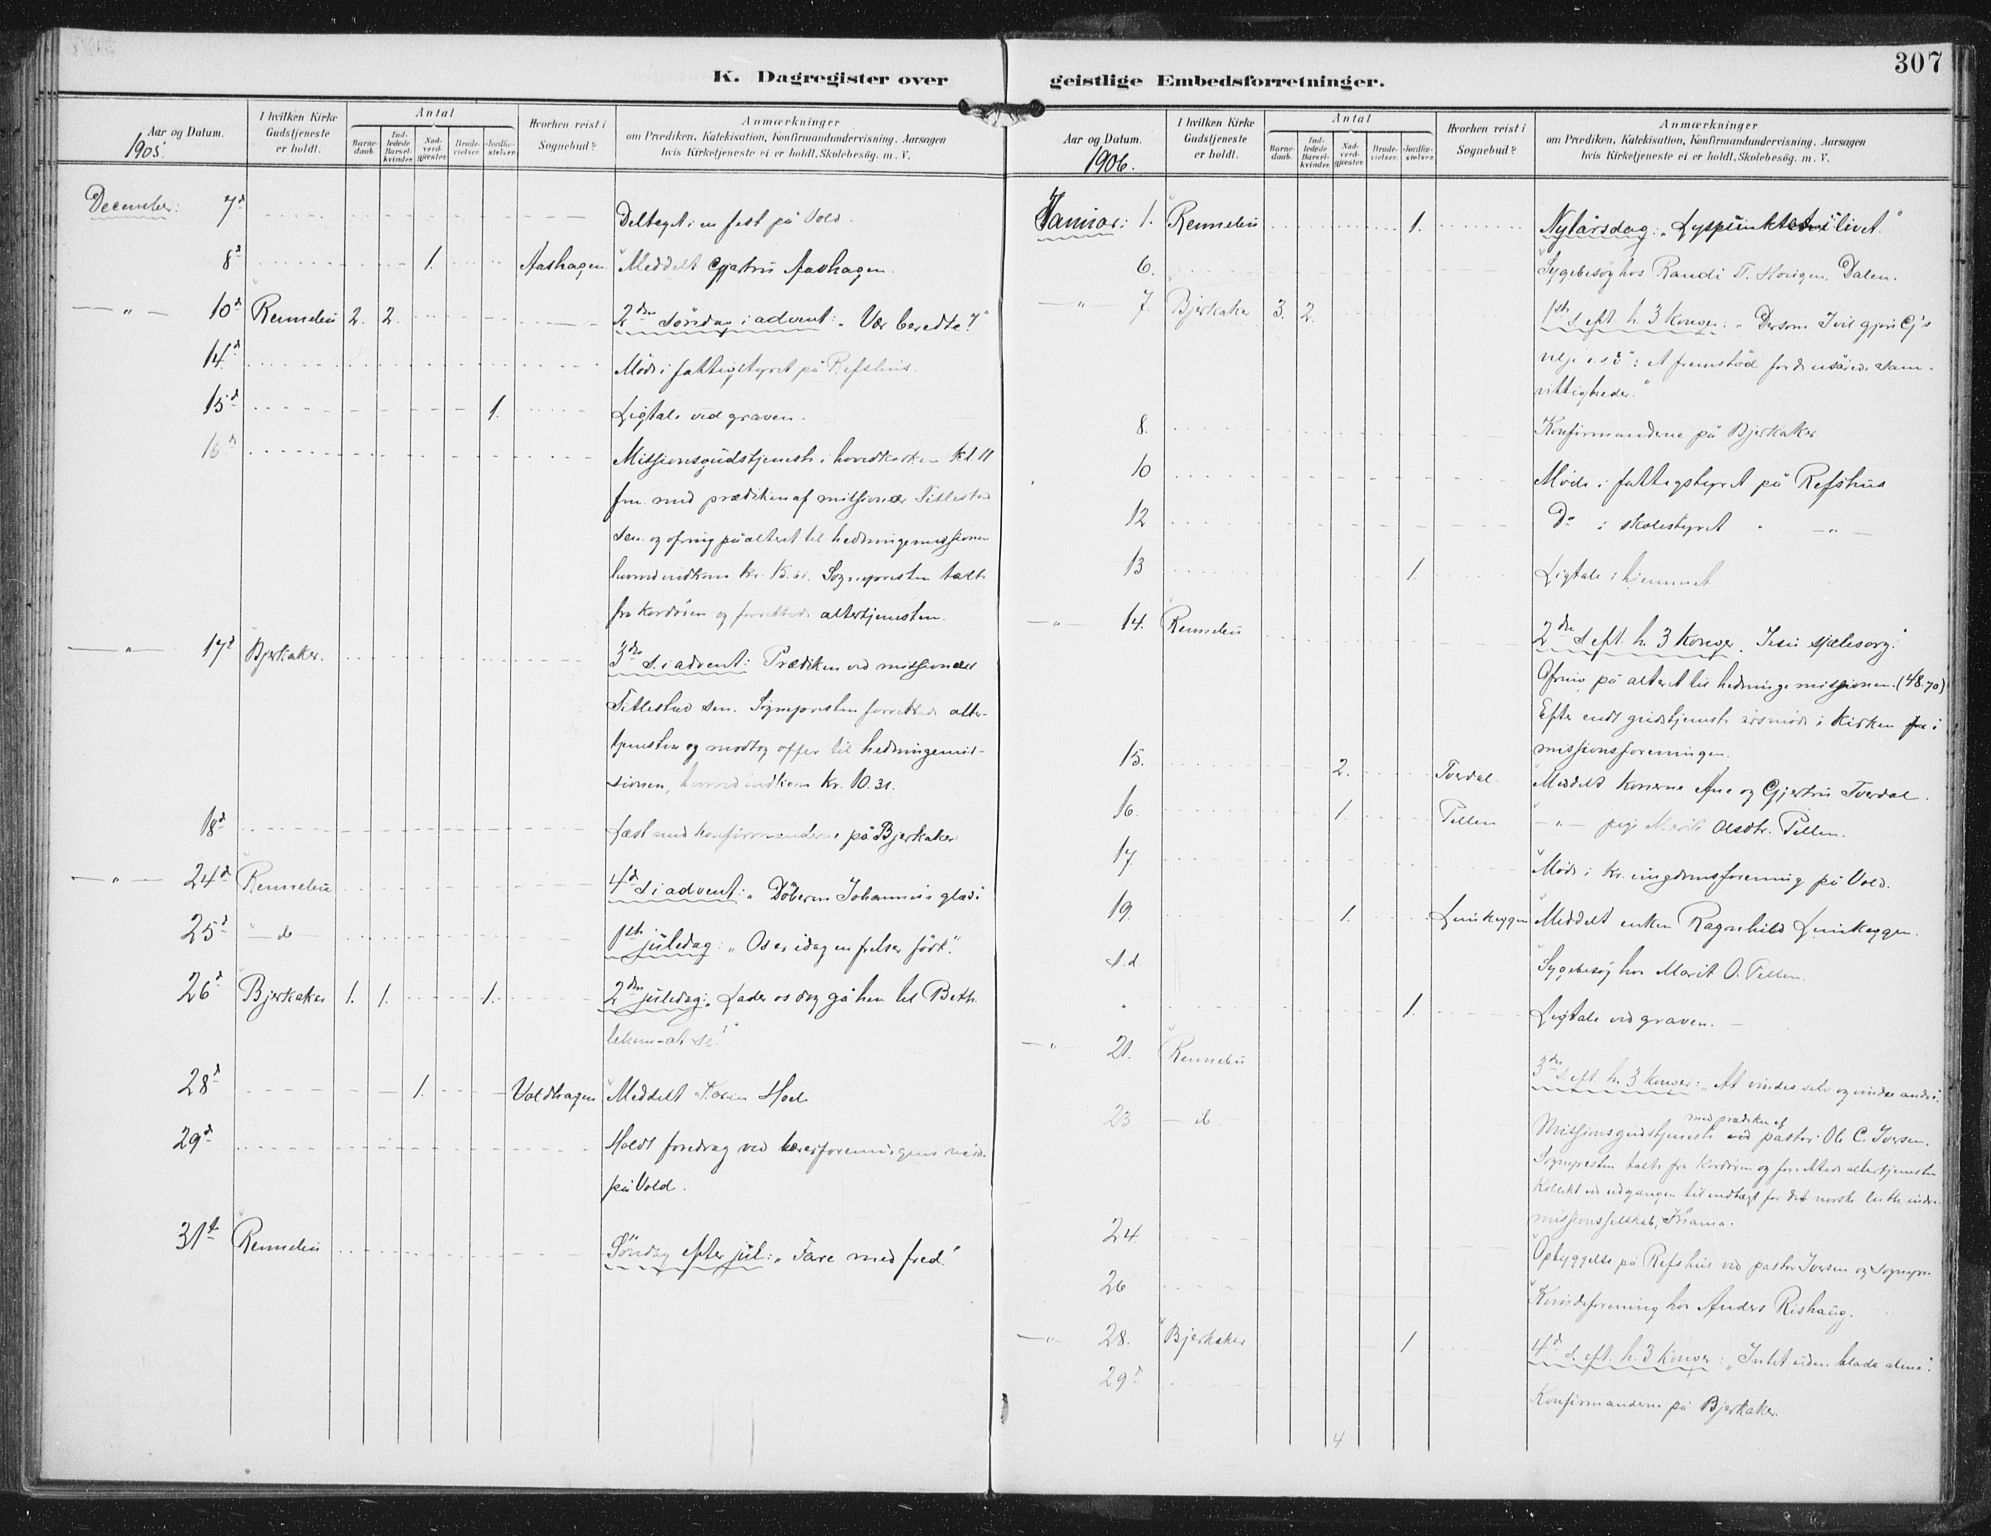 307
K. Dagregister over
Aar og Datum.
1905.
I hvilken Kirke Gudstjeneste er holdt.
Antal
Barnedaab.
Indledede Barselkvinder.
Nadverdgjæster.
Brudevielser.
Jordfæstelser.
Hvorhen reist i Sognebud?
Anmærkninger
om Prædiken, Katekisation, Konfirmandundervisning, Aarsagen
hvis Kirketjeneste ei er holdt, Skolebesøg. m. V.
December: 7d Deltaget i en fest på Vold.
8d 1. Aashagen Meddelt Gjertru Aashagen.
— " — 10d Rennebu 2. 2. 2den søndag i advent: "Vær beredte!"
14d Møde i fattigstyret på Refshus.
15d 1. Ligtale ved graven.
16d Missionsgudstjeneste i hovedkirken kl 11
fm. med prædiken af missionær Tillestad
sen. og ofring på alteret til hedningemissionen
hvorved indkom kr. 15. Sognepresten talte
fra kordøren og forrettede altertjenesten.
— " — 17d Bjerkaker. 3die s. i advent: Prædiken ved missionær
Tillestad sen. Sognepresten forrettede alter-
tjenesten og modtog offer til hedningemis-
sionen, hvorved indkom kr. 10.31.
18d Læst med konfirmanderne på Bjerkaker.
— " — 24d Rennebu 4d s. i advent: "Døberen Johannes's glæde
25d — do — 1ste juledag: "Os er idag en frelser født."
26d Bjerkaker 1. 1. 1. 2den juledag: "Lader os dog gå hen til Beth-
lehem at se!"
28d 1. Voldhagen Meddelt Karen Hoel
29d Holdt foredrag ved lærerforeningens møde
på Vold.
31te Rennebu Søndag efter jul: "Fare med fred."
geistlige Embedsforretninger.
Aar og Datum.
1906.
I hvilken Kirke Gudstjeneste er holdt.
Antal
Barnedaab.
Indledede Barselkvinder.
Nadverdgjæster.
Brudevielser.
Jordfæstelser.
Hvorhen reist i Sognebud?
Anmærkninger
om Prædiken, Katekisation, Konfirmandundervisning, Aarsagen
hvis Kirketjeneste ei er holdt, Skolebesøg. m. V.
Januar: 1. Rennebu 1. Nytårsdag: "Lyspunktet i livet."
6. Sygebesøg hos Randi T. Dalen.
— " — 7. Bjerkaker 3. 2. 1ste s. eft. h. 3 konger: "Dersom I vil gjøre Gj's
vilje o.s.v": et fremstød for de usårede sam-
vittigheder."
8. Konfirmanderne på Bjerkaker.
10 Møde i fattigstyret på Refshus
12 Do i skolestyret " — " —
13 1. Ligtale i hjemmet
— " — 14. Rennebu 2den s. eft. h. 3 konger. "Jesu sjælesorg."
Ofring på alteret til hedningemissionen. (48.70)
Efter endt gudstjeneste årsmøde i kirken i
missionsforeningen.
15. 2. Tverdal. Meddelt konerne Ane og Gjertru Tverdal.
16. 1. Pellen — " — pige Marit Olsdtr. Pellen.
17 Møde i kr. ungdomsforening på Vold.
19. 1. Meddelt enken Ragnhild
s.d. Sygebesøg hos Marit O. Pellen.
" 1. Ligtale ved graven. —
— " — 21. Rennebu 3die s. eft. h. 3 konger: "At vindes selv og vinde andre.
23 — do. med prædiken af
Missionsgudstjeneste ved pastor Ole C. Iversen.
Sognepresten talte fra kordøren og forrettede altertjenesten
Kollekt ved udgangen til indtægt for det norske luth. indre-
missionsselskab, Kr.ania.
24 Opbyggelse på Refshus ved pastor Iversen og sognepr.
26 Kvindeforening hos Anders Rishaug.
— " — 28. Bjerkaker 1 4d s. eft. h. 3 konger: "Intet uden blade alene".
29d Konfirmanderne på Bjerkaker.
4